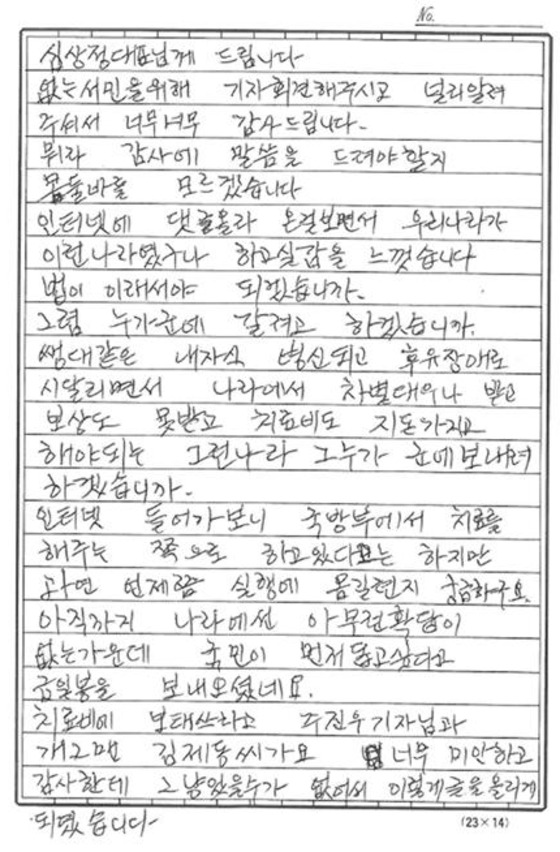 No.
심상정대표님께 드립니다
없는서민을위해 기자회견해주시고 널리알려
주셔서 너무너무 감사드립니다.
뭐라 감사에 말씀을 드려야할지
몸둘바를 모르겠습니다
인터넷에 댓글올라 온걸보면서 우리나라가
이런나라였구나 하고실감을 느꼈습니다
법이 이래서야 되겠습니까.
그럼 누가군에 갈려고 하겠습니까.
쌩대같은 내자식 병신되고 후유장애로
시달리면서 나라에서 차별대우나 받고
보상도 못받고 치료비도 지돈가지고
해야되는 그런나라 그누가 군에보내려
하겠습니까.
인터넷 들어가보니 국방부에서 치료를
해주는 쪽으로 하고있다고는 하지만
과연 언제쯤 실행에 옮길런지 궁금하구요.
아직까지 나라에선 아무런확답이
없는가운데 국민이 먼저 돕고싶다고
금일봉을 보내오셨네요.
치료비에 보태쓰라고 주진우기자님과
개그맨 김제동씨가요 너무 미안하고
감사한데 그냥있을수가 없어서 이렇게글을올리게
되었습니다
(23×14)